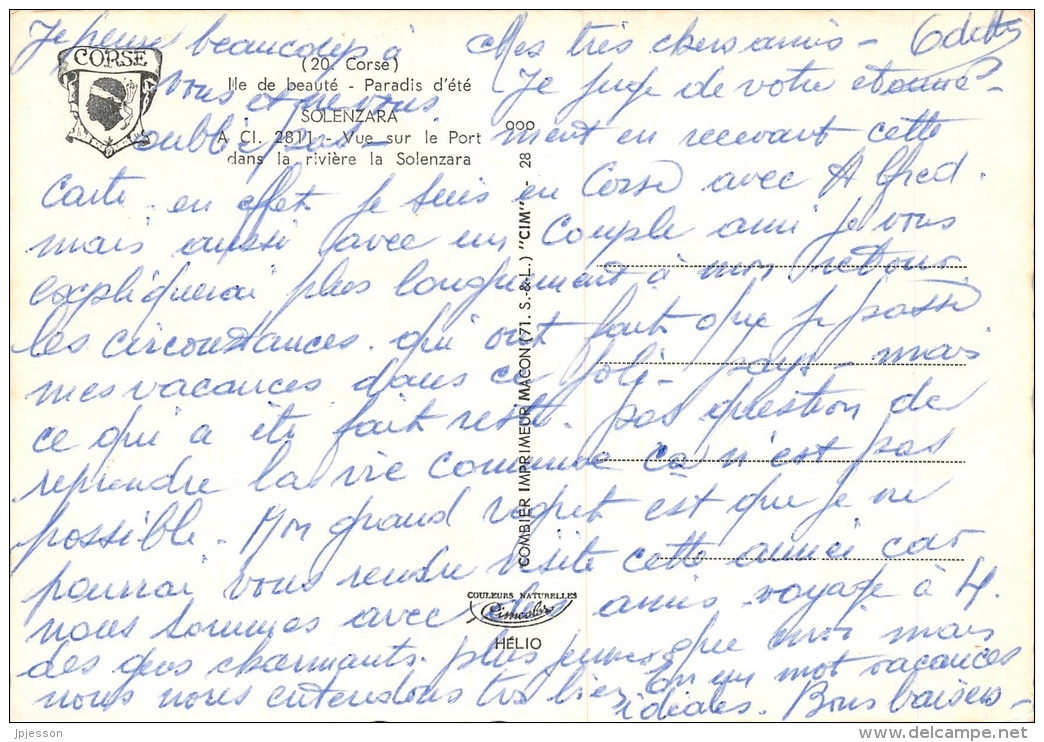 Je pense beaucoup à
vous et ne vous
oublie pas
Odette
CORSE
(20. Corse)
Ile de beauté - Paradis d'été
SOLENZARA
A CI. 2811 - Vue sur le Port
dans la rivière la Solenzara
COMBIER IMPRIMEUR MACON (71. S.-&-L.) "CIM" - 28 000
Mes très chers amis -
Je juge de votre etonne-
ment en recevant cette
Carte. en effet. je suis en Corse avec Alfred.
mais aussi avec un Couple ami je vous
expliquerai plus longuement à mon retour.
les circonstances. qui ont fait que je passe
mes vacances dans ce joli- pays - mais
ce qui a été fait reste. pas question de
reprendre la vie commune ça n'est pas
possible. - Mon grand regret est que je ne
pourrai vous rendre visite cette année car
nous sommes avec des amis. voyage à 4.
des gens charmants. plus jeunes que moi mais
nous nous entendons très bien en un mot vacances
idéales. Bons baisers -
COULEURS NATURELLES
Cimcolor
HÉLIO
jpjesson
www.delcampe.net